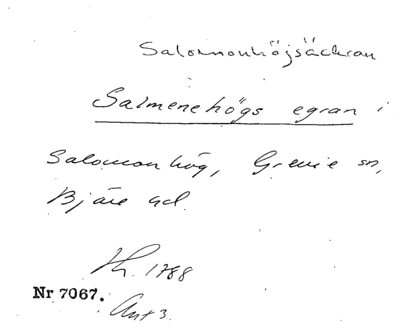 Salomonhöjsäckran
Salmenehögs egran i
Salomonhög, Grevie sn,
Bjäre hd.
Lh. 1788
Nr 7067.
Akt 3.